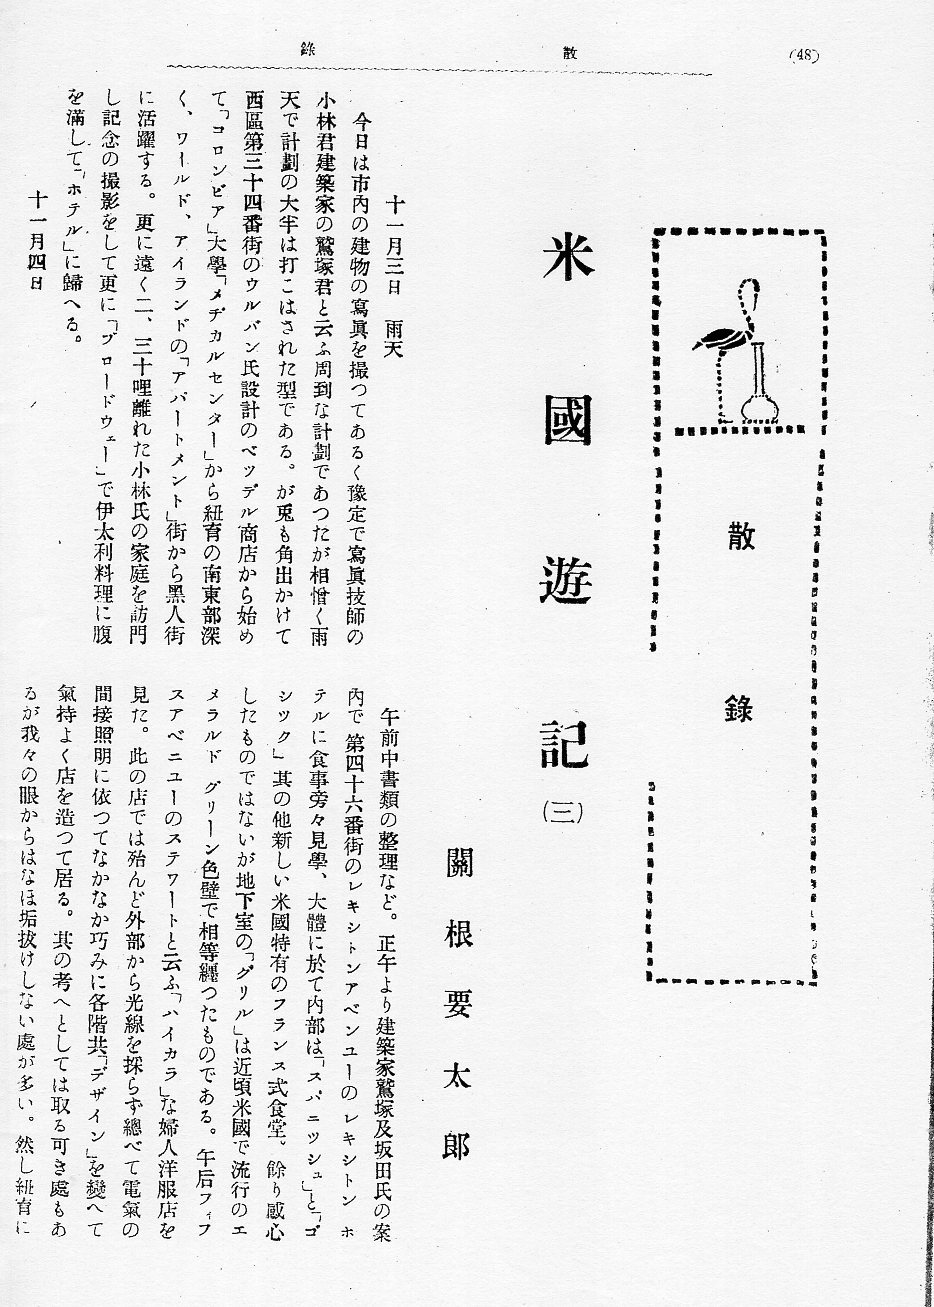 (48)
散 錄
散 錄
米國遊記 (三)
關根要太郎
十一月三日 雨天
今日は市內の建物の寫眞を撮つてあるく豫定で寫眞技師の
小林君建築家の鷲塚君と云ふ周到な計劃であつたが相憎く雨
天で計劃の大半は打こはされた型である。が兎も角出かけて
西區第三十四番街のウルバン氏設計のベツデル商店から始め
て「コロンビア」大學「メヂカルセンター」から紐育の南東部深
く、ワールド、アイランドの「アパートメント」街から黑人街
に活躍する。更に遠く二、三十哩離れた小林氏の家庭を訪門
し記念の撮影をして更に「ブロードウェー」で伊太利料理に腹
を滿して「ホテル」に歸へる。
十一月四日
午前中書類の整理など。正午より建築家鷲塚及坂田氏の案
內で 第四十六番街のレキシトンアベンユーのレキシトン ホ
テルに食事旁々見學、大體に於て內部は「スパニツシュ」と「ゴ
シツク」其の他新しい米國特有のフランス式食堂、餘り感心
したものではないが地下室の「グリル」は近頃米國で流行のエ
メラルド グリーン色壁で相等纒つたものである。午后フィフ
スアベニユーのステワートと云ふ「ハイカラ」な婦人洋服店を
見た。此の店では殆んど外部から光線を採らず總べて電氣の
間接照明に依つてなかなか巧みに各階共「デザイン」を變へて
氣持よく店を造つて居る。其の考へとしては取る可き處もあ
るが我々の眼からはなほ垢拔けしない處が多い。然し紐育に